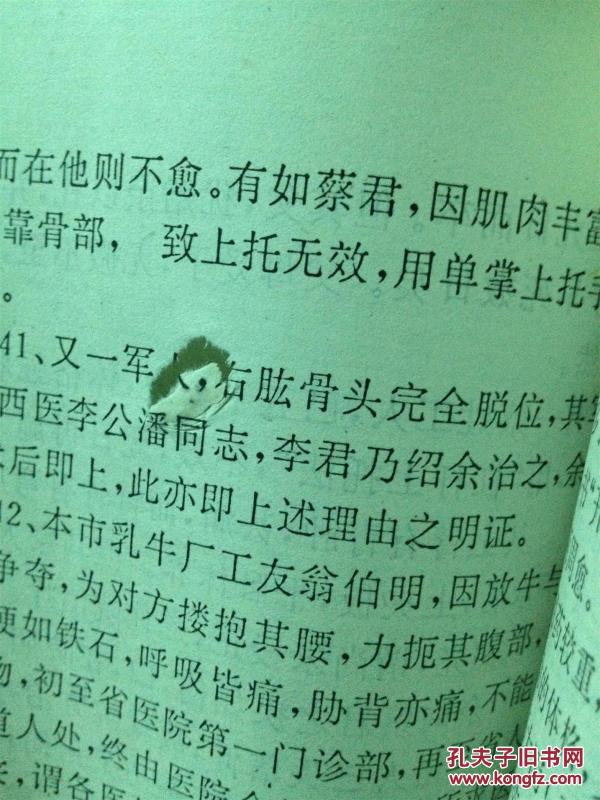 而在他则不愈。有如蔡君，因肌肉丰富
靠骨部， 致上托无效，用单掌上托手
。
41、又一军 ，右肱骨头完全脱位，其
西医李公潘同志，李君乃绍余治之，余
后即上，此亦即上述理由之明证。
42、本市乳牛厂工友翁伯明，因放牛与
争夺，为对方搂抱其腰，力扼其腹部，
硬如铁石，呼吸皆痛，胁背亦痛，不能
物，初至省医院第一门诊部，再
道人处，终由医院
谓各医
愈。
效重，
的体格
孔夫子旧书网
www.kongfz.com